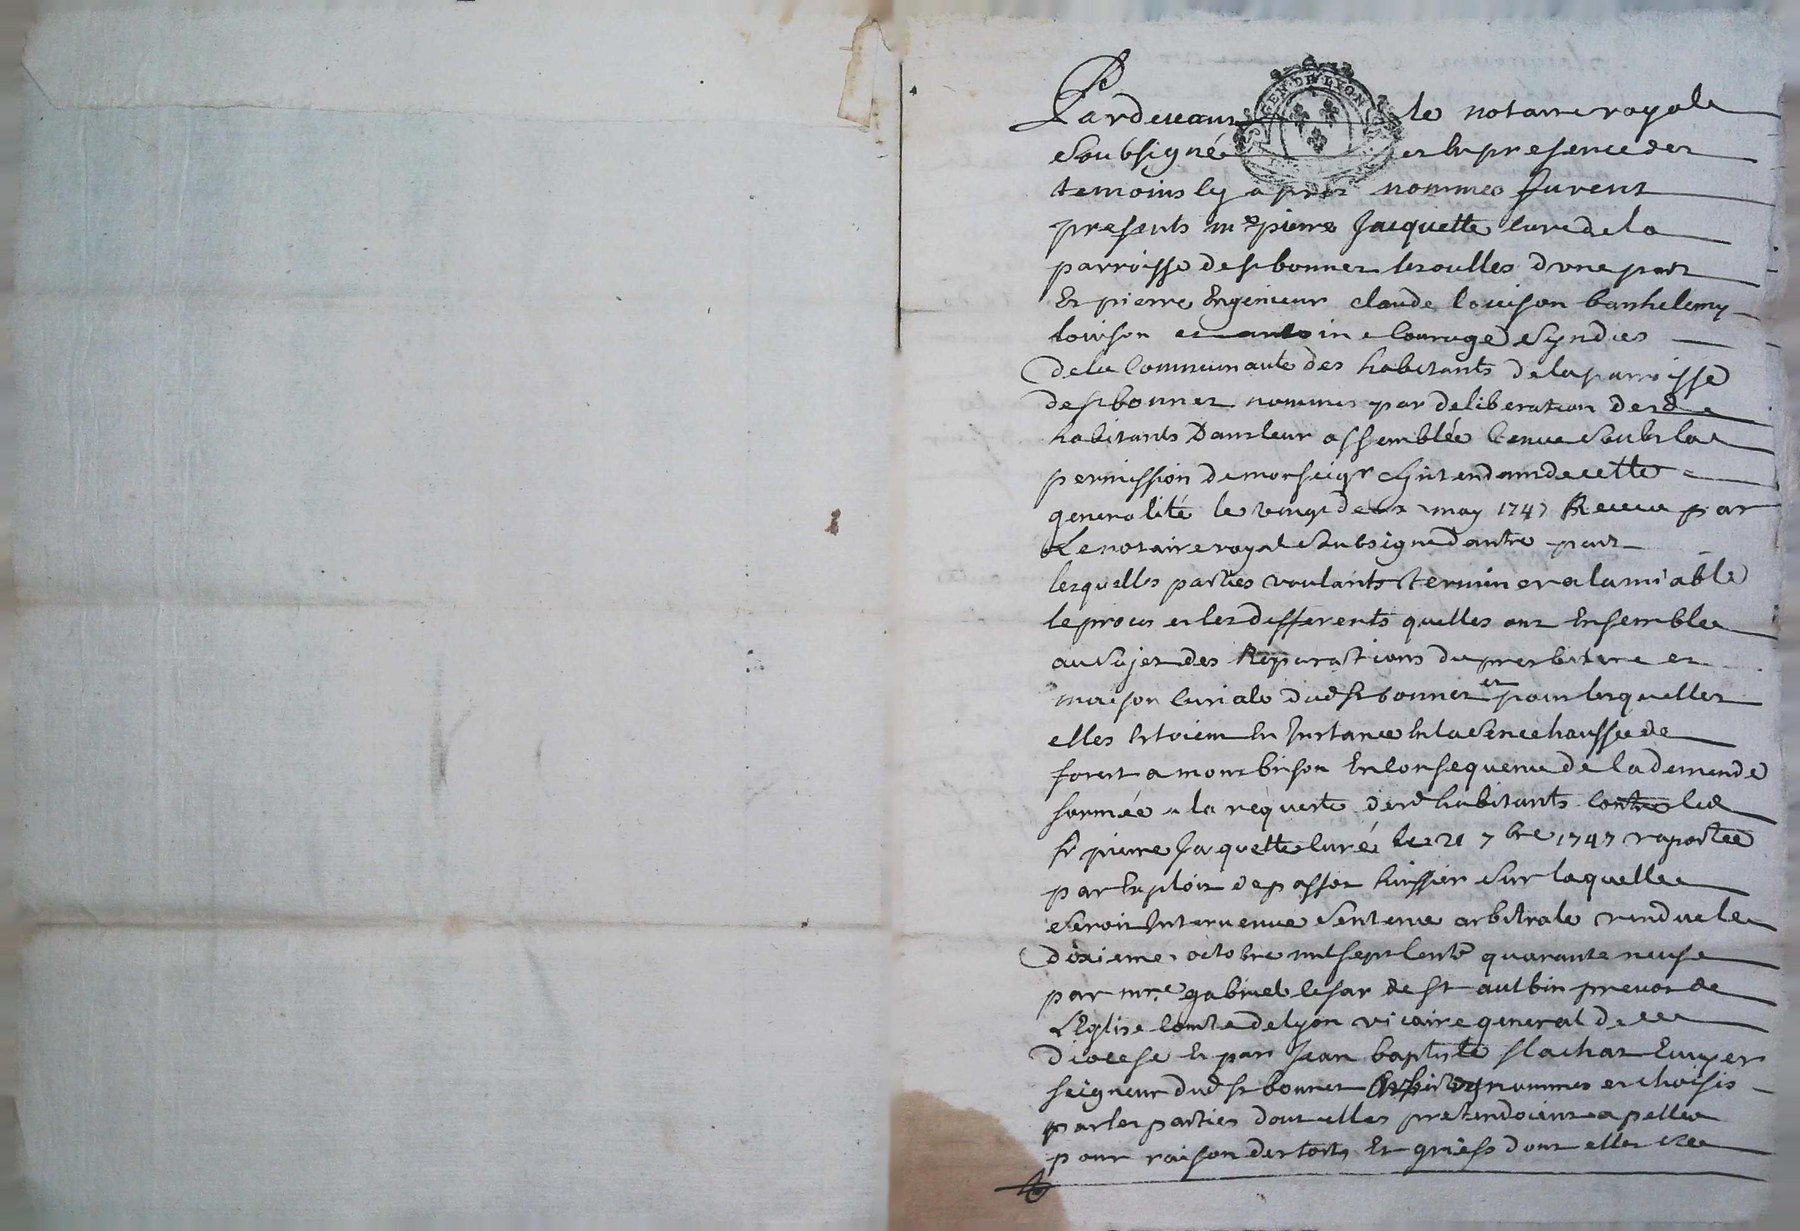 GEN. DE LYON
Pardevant le notaire royal
soubsigné et en presence des
temoins cy apres nommes furent
presents mre pierre Jacquette curé de la
parroisse de st bonnet les oulles d'une part
Et pierre Engenieur claude loüison barthelemy
loüison et antoine Courage syndics
de la Communauté des habitants de la parroisse
de st bonnet nommes par deliberation desd
habitants dans leur assemblée tenue soubs la
permission de monseigr Lintendant de cette
generalité le vingt deux may 1747 Receue par
Le notaire royal soubsigné d'autre part
lesquelles parties voulants terminer a lamiable
le proces et les differents quelles ont Ensemble
au sujet des Reparations du presbitere et
maison curiale dud st bonnet et pour lesquelles
elles Estoient En Instance En la senechaussée de
forest a montbrison En consequence de la demende
formée a la requeste desd habitants contre led
sr pierre Jaquette curé le 21 7bre 1747 raportée
par Exploit de passot huissier sur laquelle
seroit Intervenue sentence arbitrale rendue le
dixieme octobre mil sept cents quarante neufe
par mre gabriel cesar de st aulbin prevot de
L'Eglise comte de lyon vicaire general de ce
diocese Et par Jean baptiste flachat Ecuyer
seigneur dud st bonnet Arbitres nommes et choisis
par les parties dont elles pretendoient apeller
pour raison des torts Et griefs dont elles